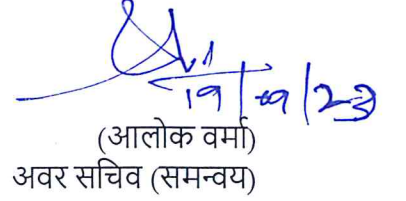 19/09/23
(आलोक वर्मा)
अवर सचिव (समन्वय)